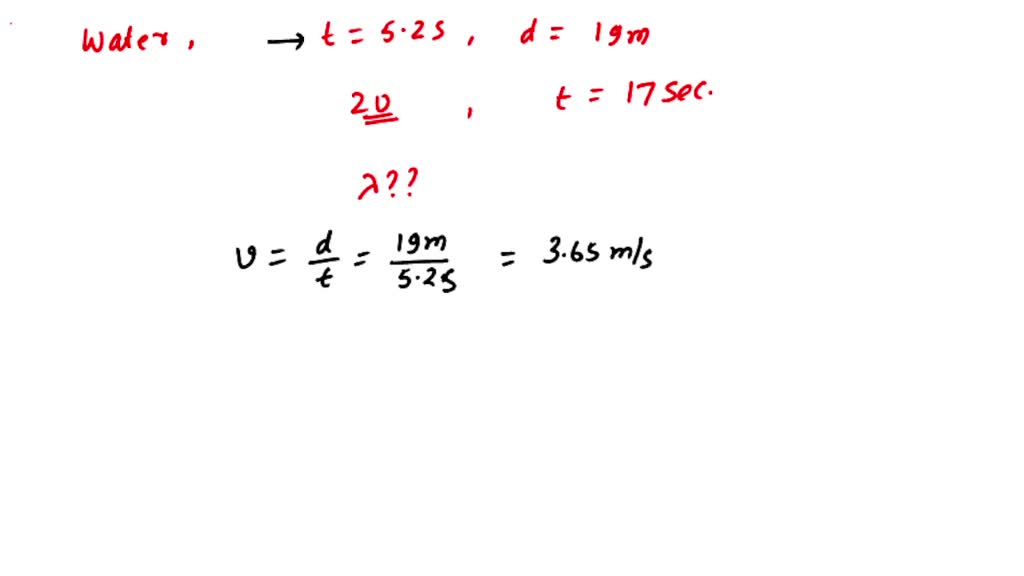 Water, → t = 5.2s, d = 19m
20, t = 17 sec.
λ??
v = d/t = 19m/5.2s = 3.65 m/s